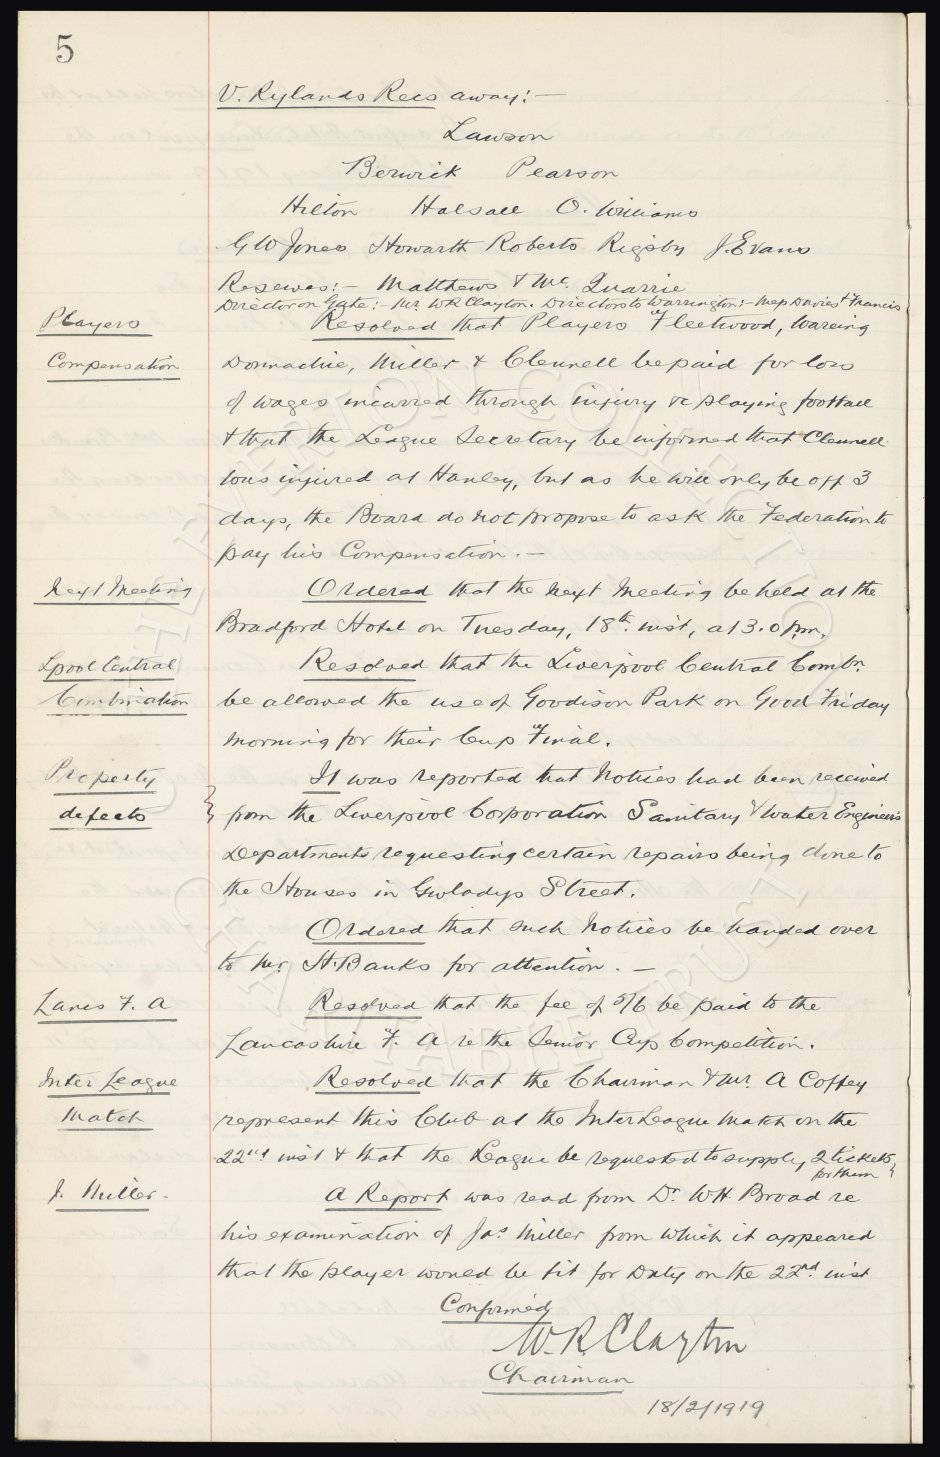 5
V. Rylands Recs away:—
Lawson
Berwick Pearson
Hilton Halsall O. Williams
G W Jones Howarth Roberts Rigsby J. Evans
Reserves:— Matthews & Mc. Quarrie
Director on Gate:— Mr. W R Clayton. Directors to Warrington:— Davies & Francis
Players Resolved that Players Fleetwood, Wareing
Compensation Donnachie, Miller & Clennell be paid for loss
of wages incurred through injury re playing football
& that the League Secretary be informed that Clennell
was injured at Hanley, but as he will only be off 3
days, the Board do not propose to ask the Federation to
pay his Compensation.—
Next Meeting Ordered that the next Meeting be held at the
Bradford Hotel on Tuesday, 18th. inst, at 3.0 p.m.
Lpool Central Resolved that the Liverpool Central Combn.
Combination be allowed the use of Goodison Park on Good Friday
morning for their Cup Final.
Property It was reported that Notices had been received
defects } from the Liverpool Corporation Sanitary & Water Engineers
Departments requesting certain repairs being done to
the Houses in Gwladys Street.
Ordered that such Notices be handed over
to Mr. H. Banks for attention.—
Lancs F. A Resolved that the fee of 5/6 be paid to the
Lancashire F. A re the Senior Cup Competition.
Inter League Resolved that the Chairman & Mr. A Coffey
Match represent this Club at the InterLeague Match on the
22nd inst & that the League be requested to supply 2 tickets
for them
J. Miller. A Report was read from Dr. W.H. Broad re
his examination of Jas. Miller from which it appeared
that the player would be fit for Duty on the 22nd. inst
Confirmed
W. R. Clayton
Chairman
18/2/1919